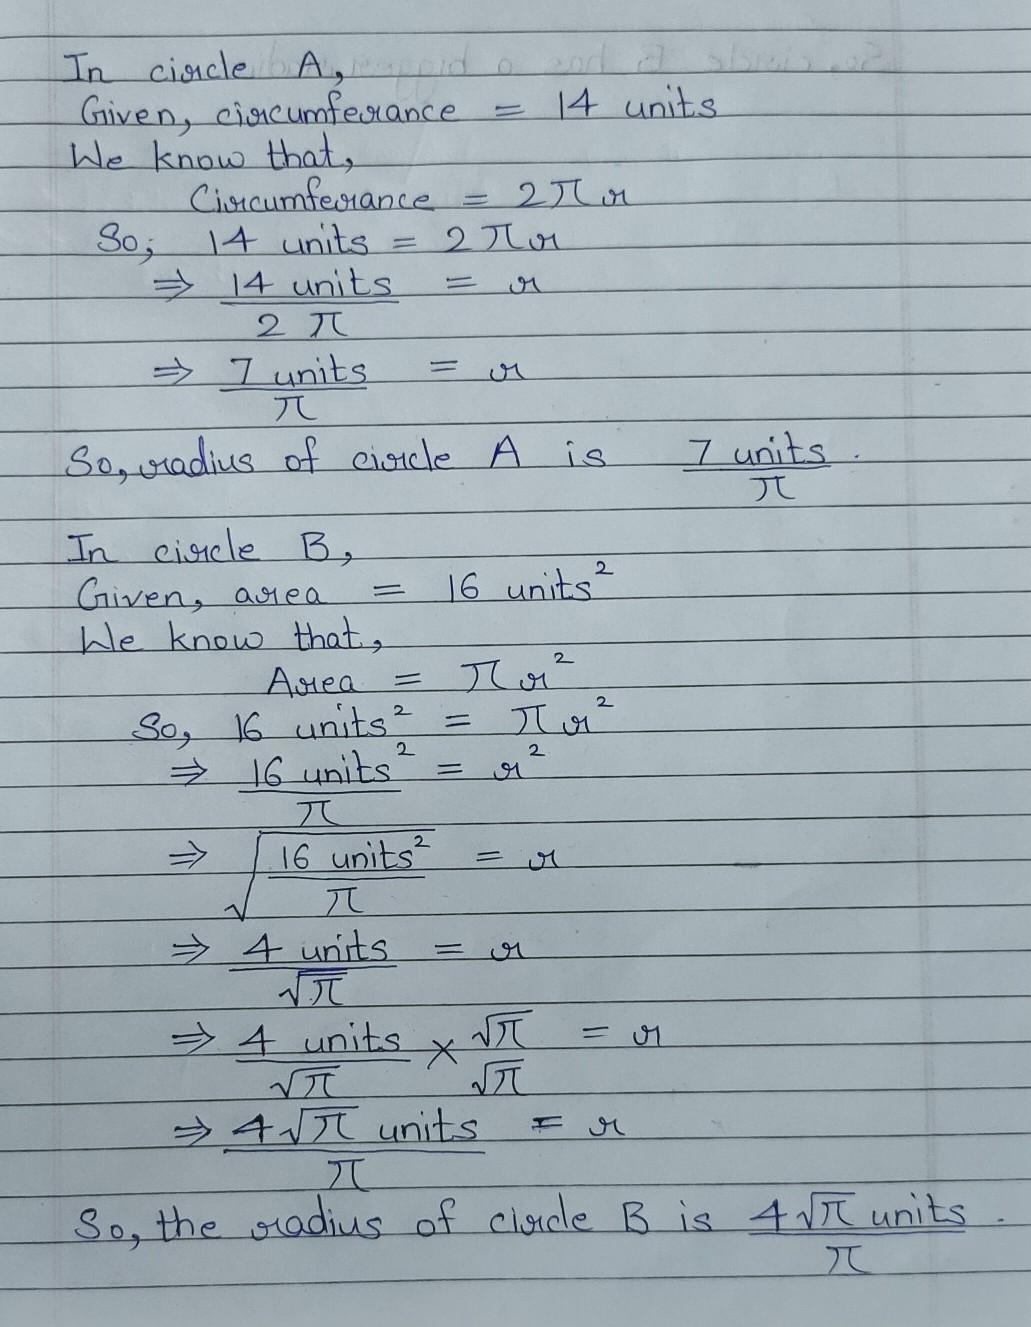 In circle A,
Given, circumferance = 14 units
We know that,
Circumferance = 2πr
So, 14 units = 2πr
⇒ 14 units / 2π = r
⇒ 7 units / π = r
So, radius of circle A is 7 units / π .
In circle B,
Given, area = 16 units²
We know that,
Area = πr²
So, 16 units² = πr²
⇒ 16 units² / π = r²
⇒ √(16 units² / π) = r
⇒ 4 units / √π = r
⇒ 4 units / √π × √π / √π = r
⇒ 4√π units / π = r
So, the radius of circle B is 4√π units / π .